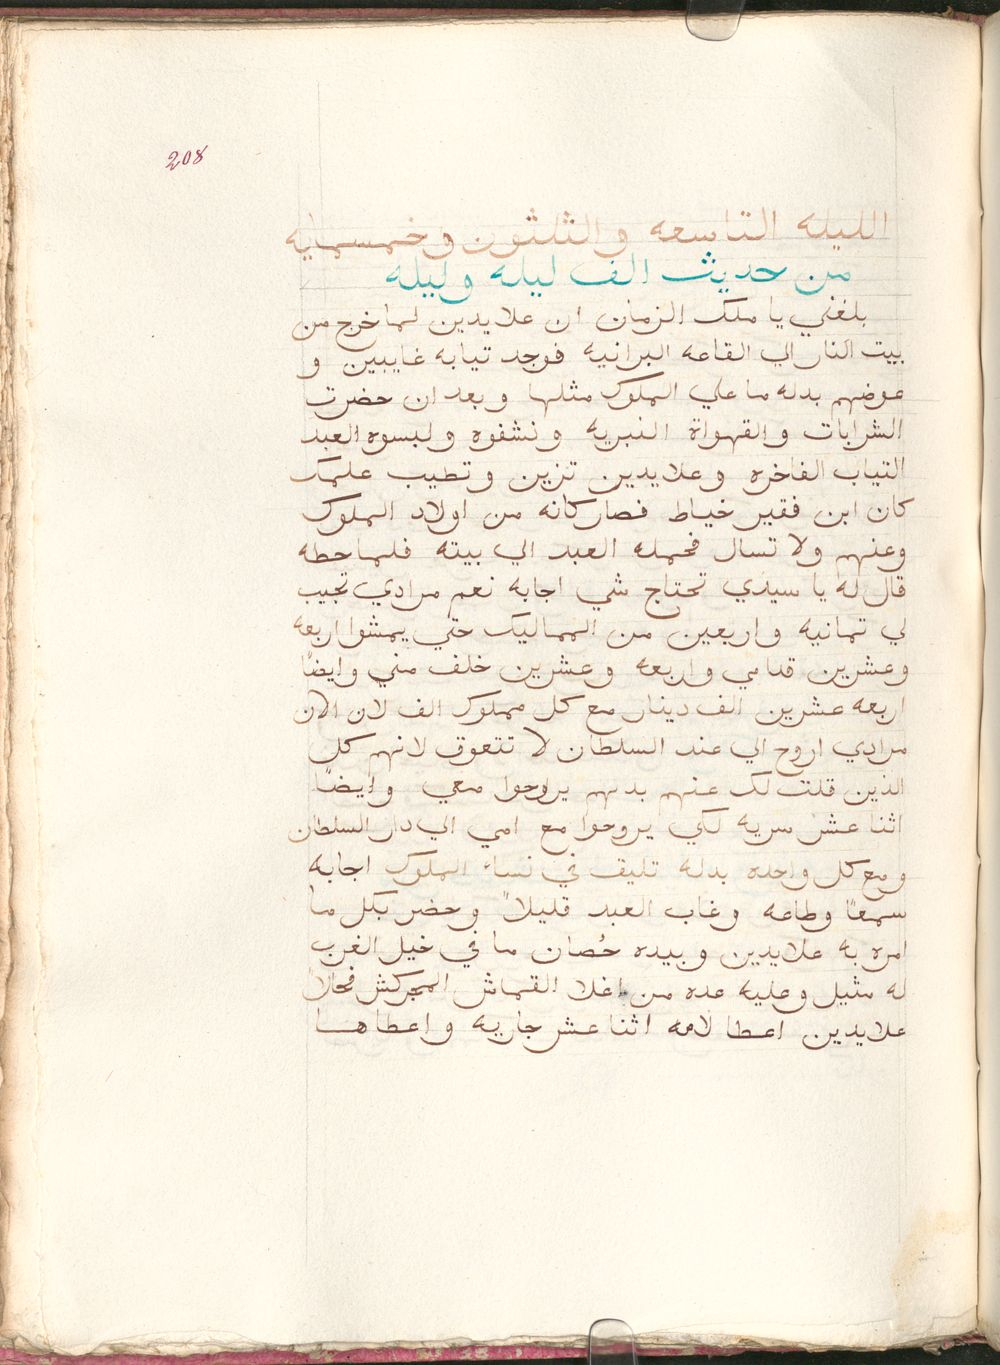 208
الليله التاسعه والثلثون وخمسمايه
من حديث الف ليله وليله
بلغني يا ملك الزمان ان علايدين لما خرج من
بيت النار الي القاعه البرانيه فوجد تيابه غايبين و
عوضهم بدله ما علي الملوك مثلها وبعد ان حضرت
الشرابات والقهواة النبريه ونشفوه ولبسوه العبد
التياب الفاخره وعلايدين تزين وتطيب علمك
كان ابن فقير خياط فصار كانه من اولاد الملوك
وعنهم ولا تسال فحمله العبد الي بيته فلما حطه
قال له يا سيدي تحتاج شي اجابه نعم مرادي تجيب
لي تمانيه واربعين من المماليك حتي يمشوا اربعه
وعشرين قدامي واربعه وعشرين خلف مني وايضًا
اربعه عشرين الف دينار مع كل مملوك الف لان الان
مرادي اروح الي عند السلطان لا تتعوق لانهم كل
الذين قلت لك عنهم بدهم يروحوا معي وايضًا
اثنا عشر سريه لكي يروحوا مع امي الي دار السلطان
ومع كل واحده بدله تليق في نساء الملوك اجابه
سمعًا وطاعه وغاب العبد قليلاً وحضر بكل ما
امره به علايدين وبيده حُصان ما في خيل الغرب
له مثيل وعليه عده من اغلا القماش المجركش فحالا
علايدين اعطا لامه اثنا عشر جاريه واعطاها